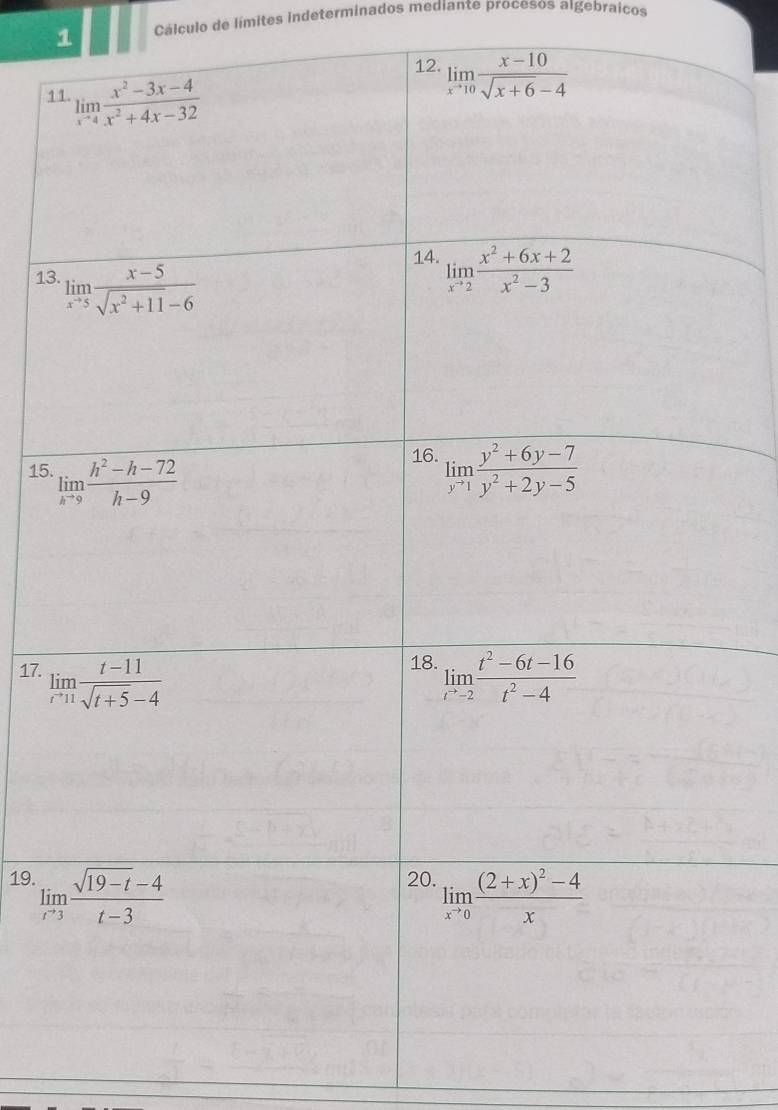 1
Cálculo de límites indeterminados mediante procesos algebraicos
11. lim x→4 (x² − 3x − 4)/(x² + 4x − 32)
12. lim x→10 (x − 10)/(√(x + 6) − 4)
13. lim x→5 (x − 5)/(√(x² + 11) − 6)
14. lim x→2 (x² + 6x + 2)/(x² − 3)
15. lim h→9 (h² − h − 72)/(h − 9)
16. lim y→1 (y² + 6y − 7)/(y² + 2y − 5)
17. lim t→11 (t − 11)/(√(t + 5) − 4)
18. lim t→−2 (t² − 6t − 16)/(t² − 4)
19. lim t→3 (√(19 − t) − 4)/(t − 3)
20. lim x→0 ((2 + x)² − 4)/x